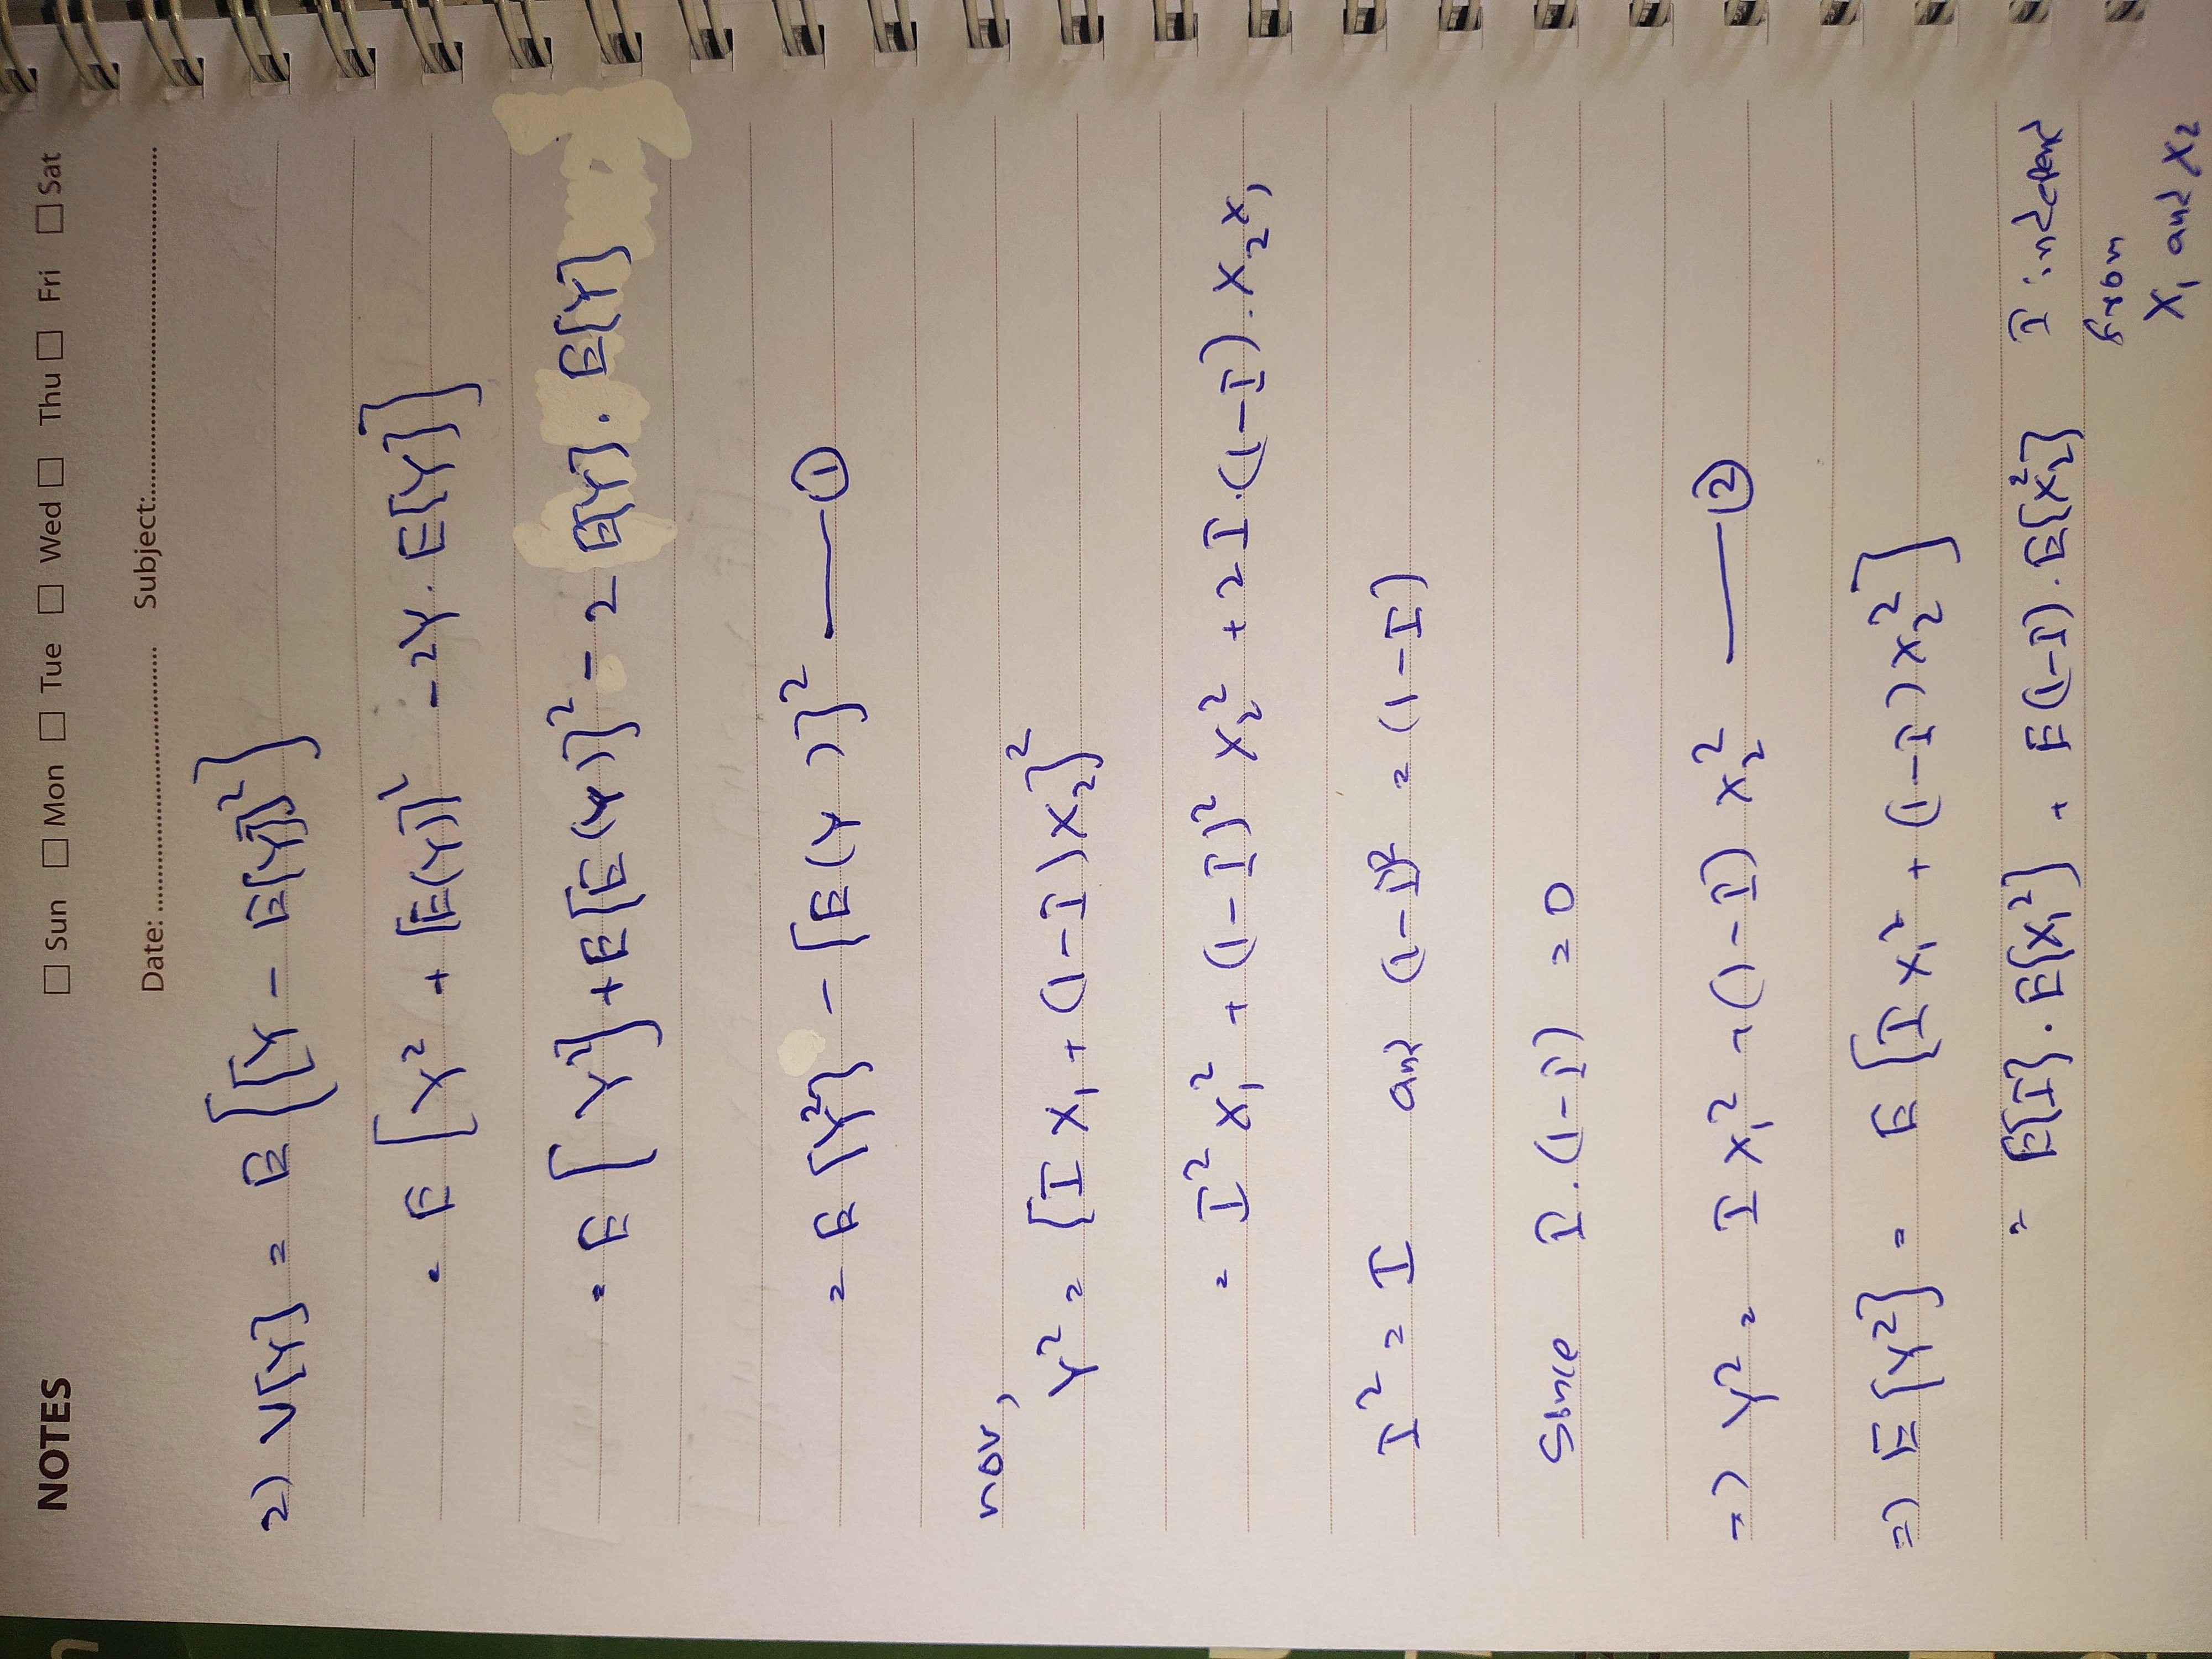 NOTES
Sun Mon Tue Wed Thu Fri Sat
Date: Subject:
2) V[Y] = E[[Y - E[Y]]²]
= E[Y² + [E(Y)]² - 2Y. E[Y]]
= E[Y²] + E[E(Y)]² - 2 E[Y]. E[Y]
= E[Y²] - [E(Y)]² — ①
now,
Y² = [I X₁ + (1-I)X₂]²
= I² X₁² + (1-I)² X₂² + 2 I.(1-I). X₂X₁
I² = I and (1-I)² = (1-I)
Since I.(1-I) = 0
=> Y² = I X₁² + (1-I) X₂² — ②
=> E[Y²] = E[I X₁² + (1-I) X₂²]
= E[I]. E[X₁²] + E(1-I). E[X₂²] I indepent
from
X₁ and X₂